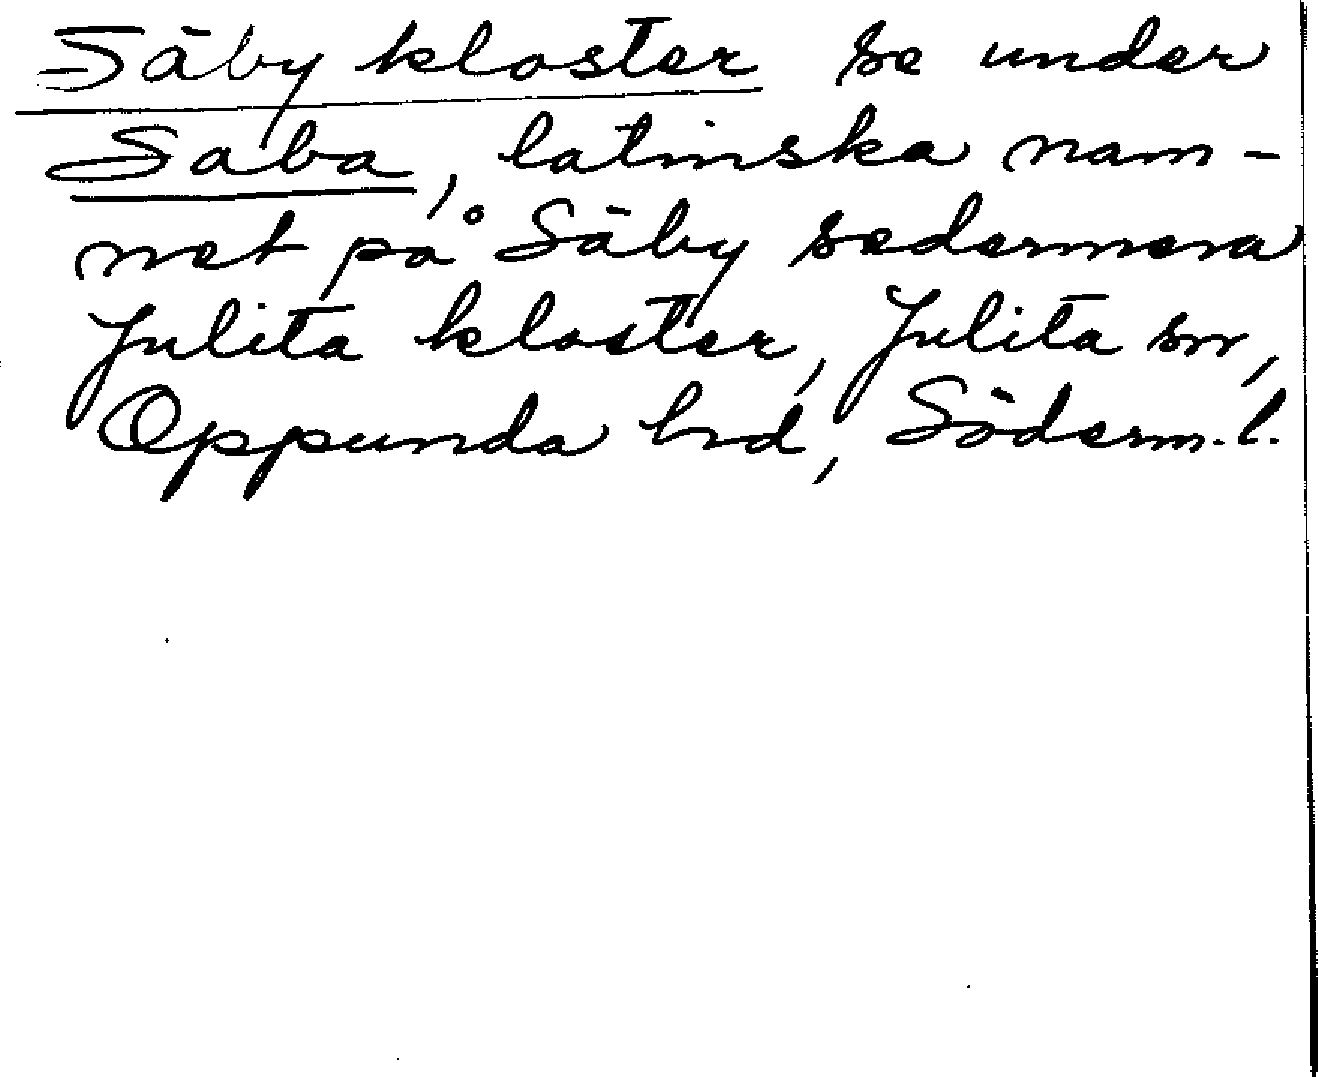 Säby kloster se under
Saba, latinska nam-
net på Säby sedermera
Julita kloster, Julita sn,
Oppunda hrd, Söderm. l.